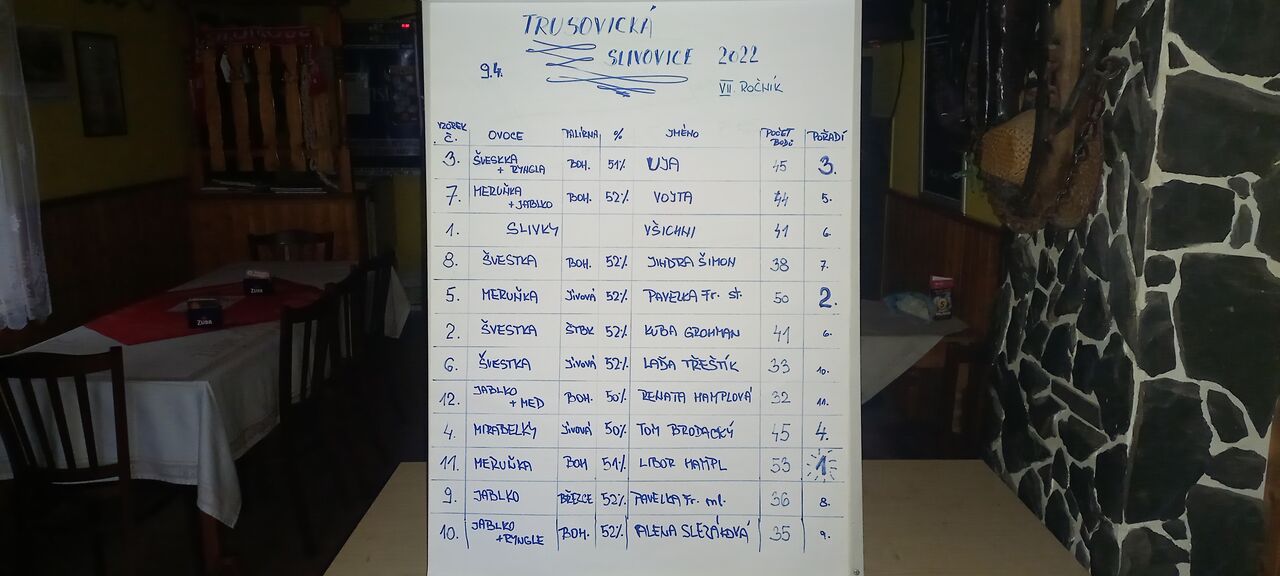 TRUSOVICKÁ
SLIVOVICE 2022
9.4.
VII. ROČNÍK
VZOREK Č. OVOCE PALÍRNA % JMÉNO POČET BODŮ POŘADÍ
3. ŠVESKKA + RYNGLA BOH. 51% UJA 45 3.
7. MERUŇKA + JABLKO BOH. 52% VOJTA 44 5.
1. SLIVKY VŠICHNI 41 6.
8. ŠVESTKA BOH. 52% JINDRA ŠIMON 38 7.
5. MERUŇKA Jívová 52% PAVELKA Fr. st. 50 2.
2. ŠVESTKA ŠTBK 52% KUBA GROHMAN 41 6.
6. ŠVESTKA Jívová 52% LAĎA TŘEŠTÍK 33 10.
12. JABLKO + MED BOH. 50% RENATA HAMPLOVÁ 32 11.
4. MIRABELKY Jívová 50% TOM BRODACKÝ 45 4.
11. MERUŇKA BOH 51% LIBOR HAMPL 53 1
9. JABLKO BŘEZCE 52% PAVELKA Fr. ml. 36 8.
10. JABLKO + RYNGLE BOH. 52% ALENA SLEZÁKOVÁ 35 9.
ZUBR
ZUBR